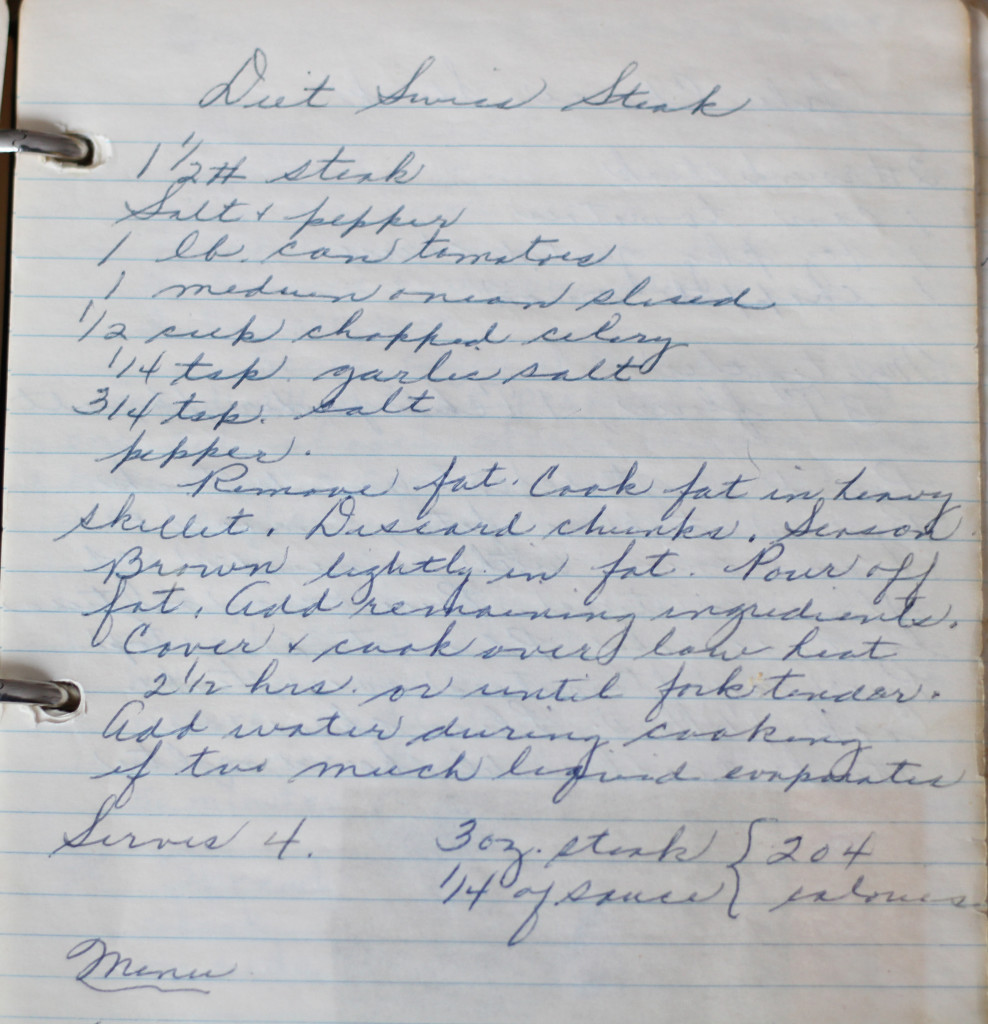 Diet Swiss Steak
1 1/2# steak
Salt & pepper
1 lb. can tomatoes
1 medium onion sliced
1/2 cup chopped celery
1/4 tsp. garlic salt
3/4 tsp. salt
pepper.
Remove fat. Cook fat in heavy
skillet. Discard chunks. Season
Brown lightly in fat. Pour off
fat. Add remaining ingredients.
Cover & cook over low heat
2 1/2 hrs. or until fork tender.
Add water during cooking
if too much liquid evaporates
Serves 4. 3 oz. steak { 204
1/4 of sauce { calories
Menu